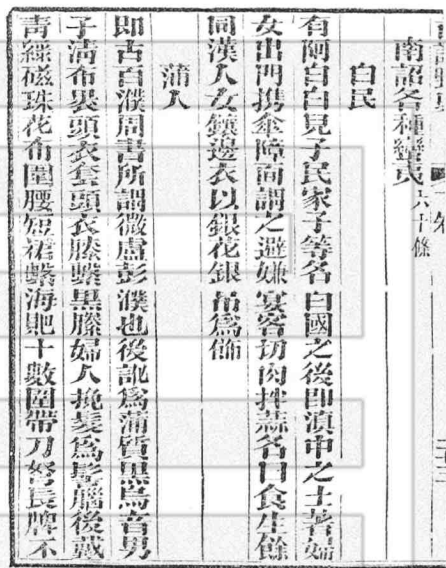 南詔各種蠻夷六十條
白民
有阿白白兒子民家子等名白國之後即滇中之土著婦
女出門携傘障面謂之避嫌宴客切肉拌蒜名曰食生餘
同漢人女鑲邊衣以銀花銀吊為飾
蒲人
即古百濮周書所謂微盧彭濮也後訛為蒲質黑烏音男
子清布裹頭衣套頭衣膝繫黑縢婦人挽髮為髻腦後戴
青綠磁珠花布圍腰短裙繫海𧵅十數圍帶刀弩長牌不